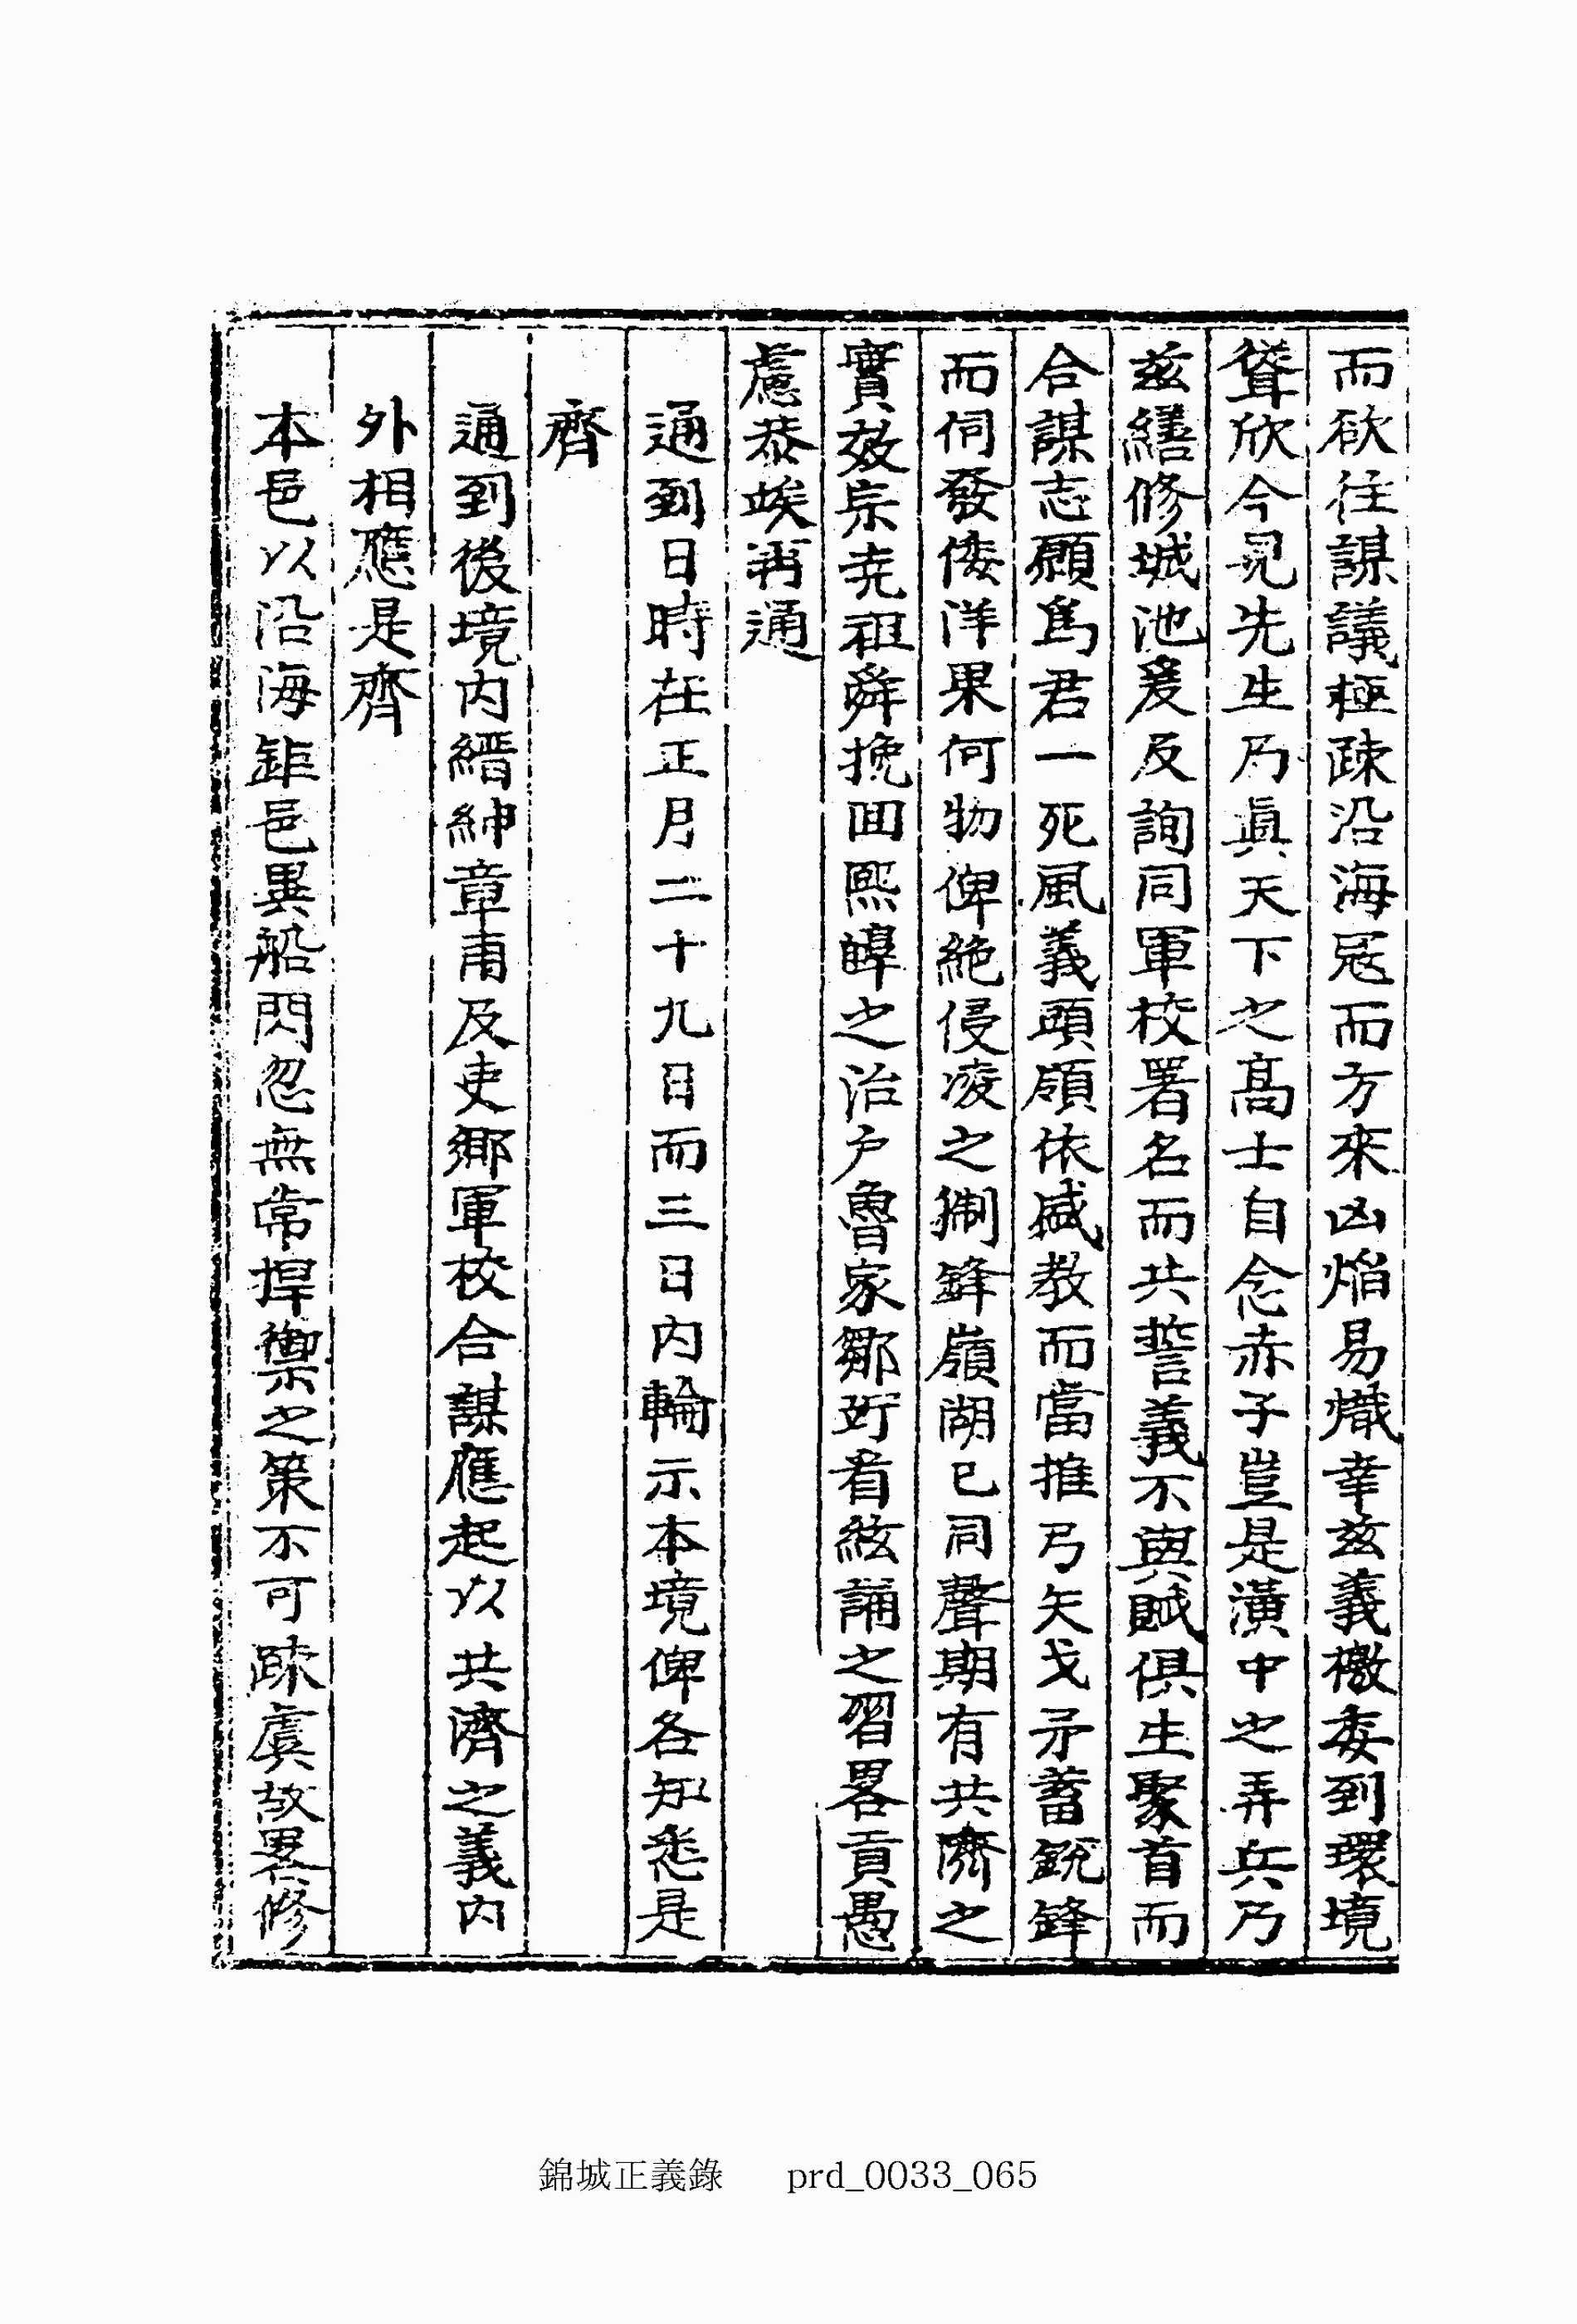 而欲往謀議極疎沿海冦而方來凶焰易熾幸玆義檄委到環境
聳欣今見先生乃眞天下之高士自念赤子豈是潢中之弄兵乃
玆繕修城池爰及詢同軍校署名而共誓義不與賊俱生聚首而
合謀志願爲君一死風義頭領依盛教而當推弓矢戈矛蓄銳鋒
而伺發倭洋果何物俾絶侵凌之猘鋒嶺湖已同聲期有共濟之
實效宗堯祖舜挽回熙皥之治户魯家鄒竚看絃誦之習畧貢愚
慮恭竢再通
通到日時在正月二十九日而三日内輪示本境俾各知悉是
齊
通到後境内縉紳章甫及吏鄉軍校合謀應起以共濟之義内
外相應是齊
本邑以沿海鉅邑異船閃忽無常捍禦之策不可疎虞故畧修
錦城正義錄 prd_0033_065